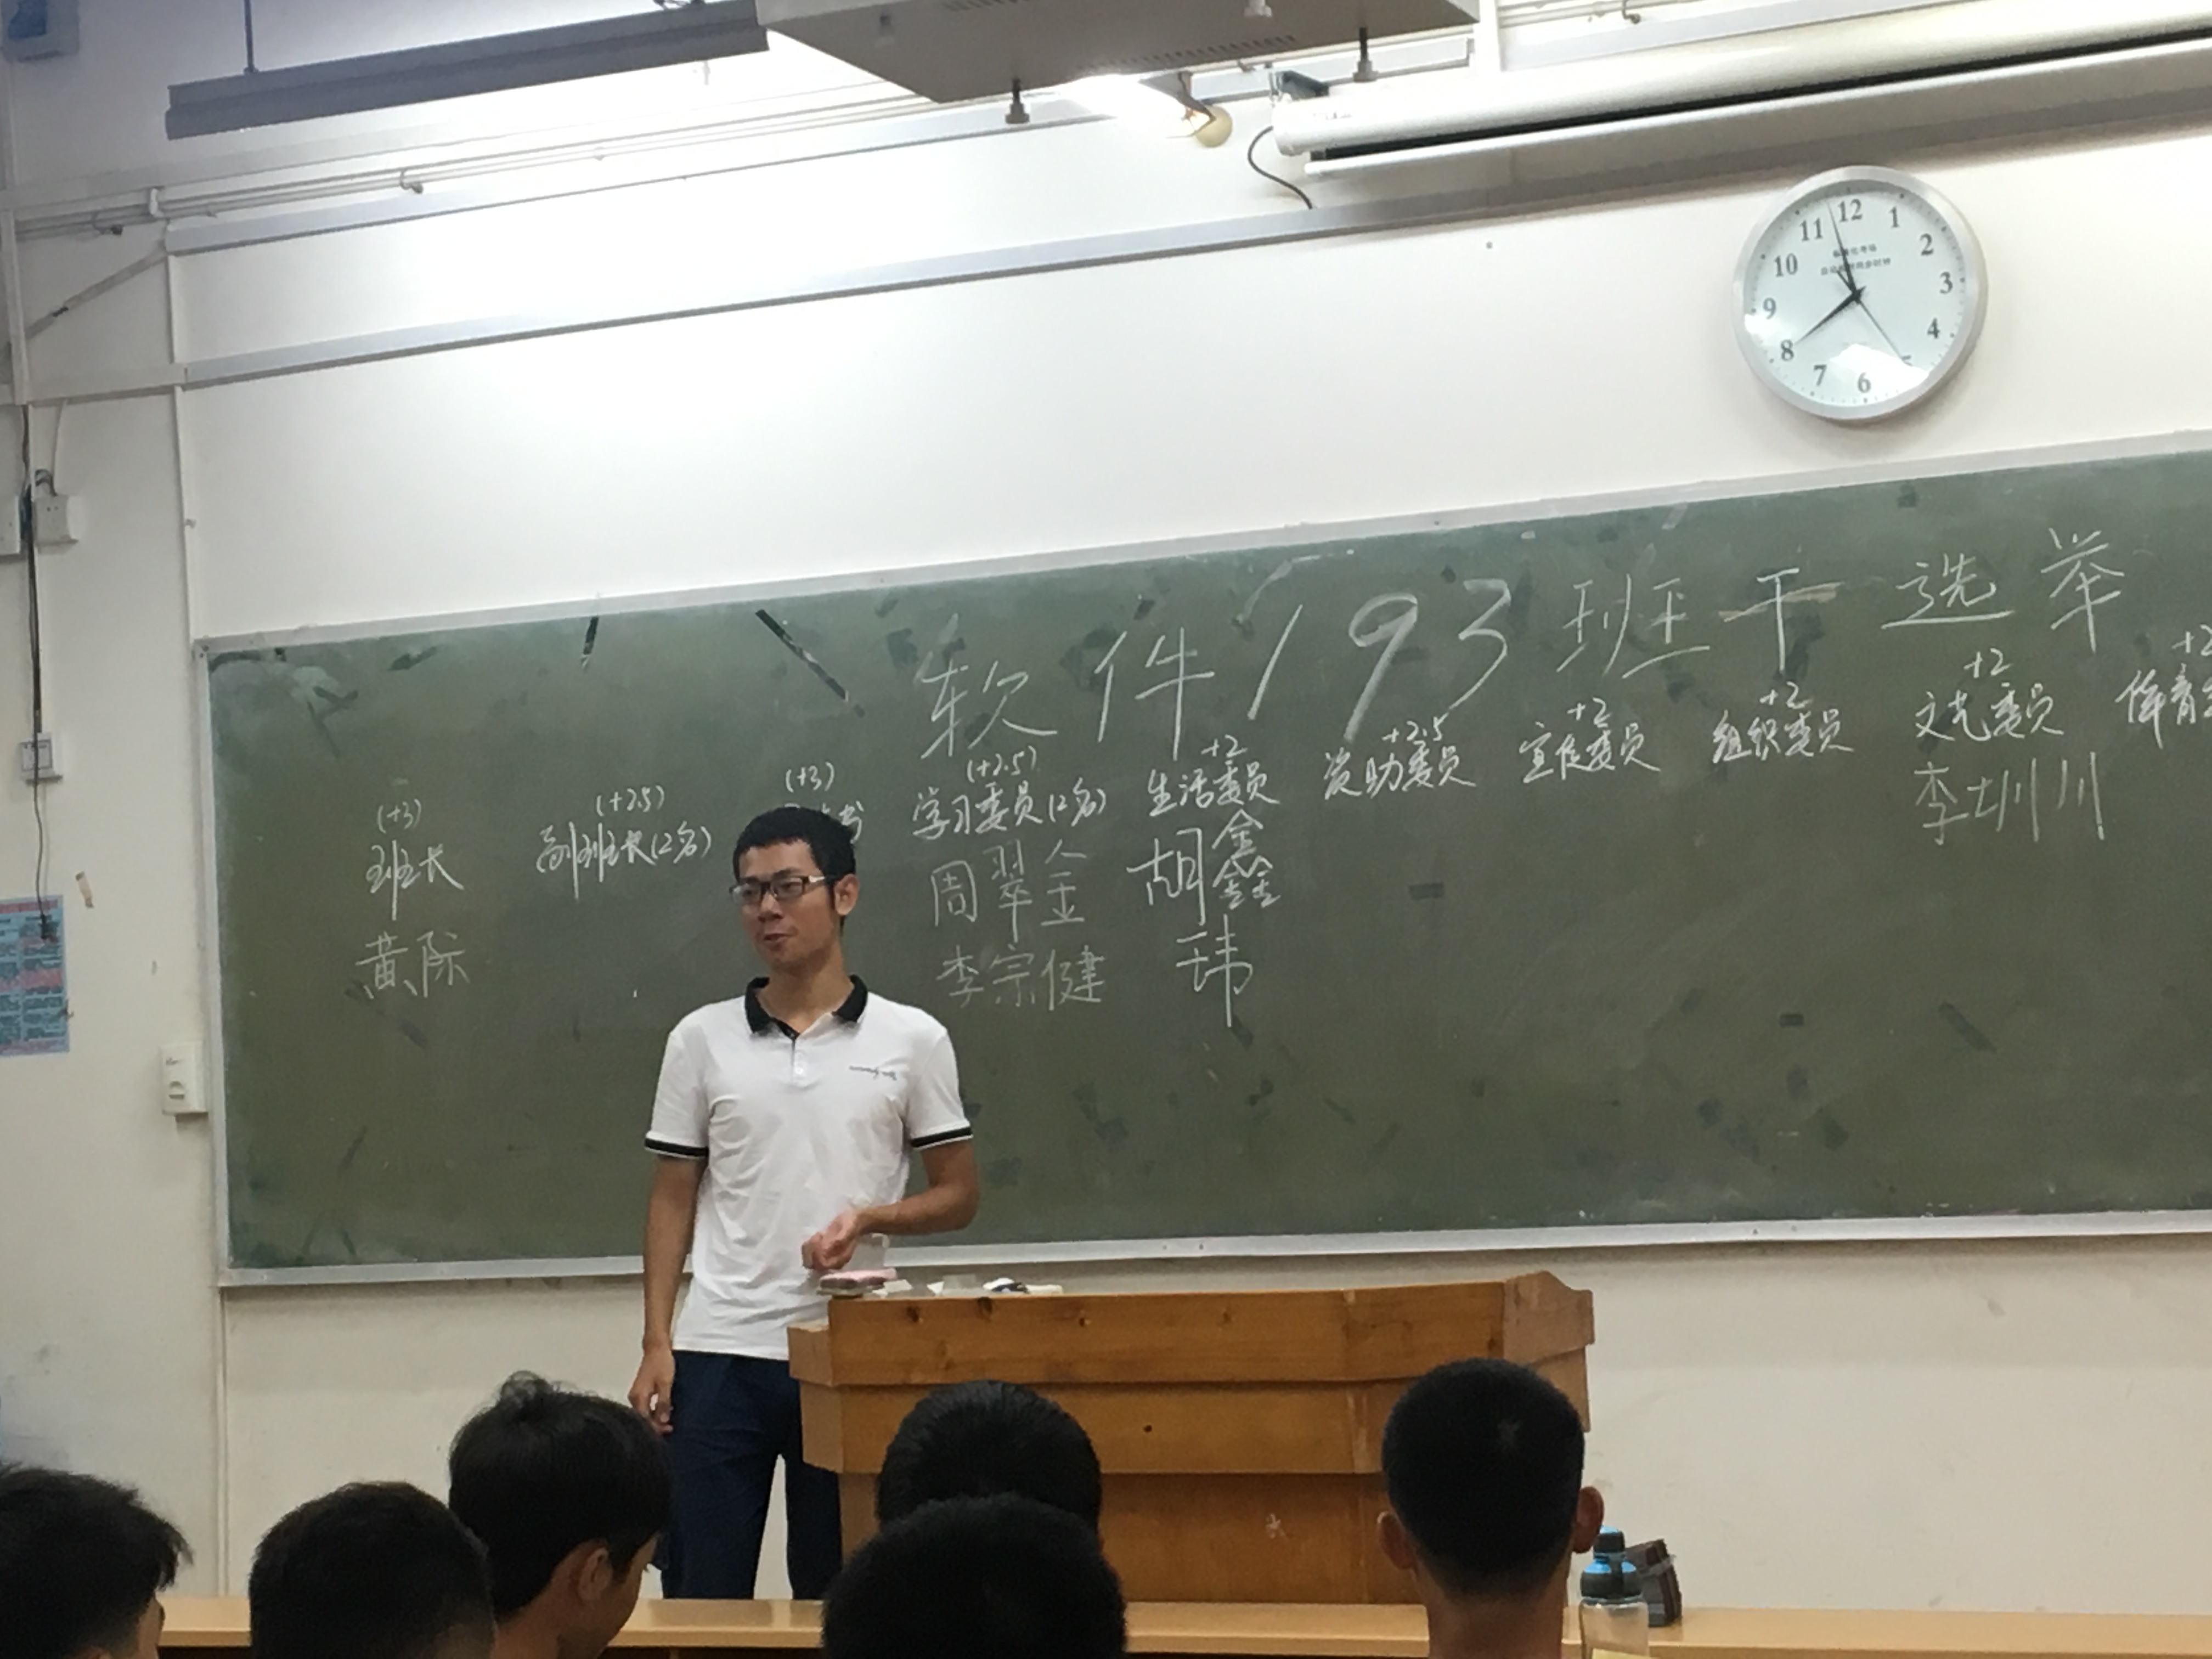 12
1
2
3
4
6
7
8
9
10
11
软件193班干选举
(+3)
班长
黄际
(+2.5)
副班长(2名)
(+3)
书
(+2.5)
学习委员(2名)
周翠金
李宗健
+2
生活委员
胡鑫
玮
+2.5
资助委员
+2
宣传委员
+2
组织委员
+2
文艺委员
李圳川
+2
体育